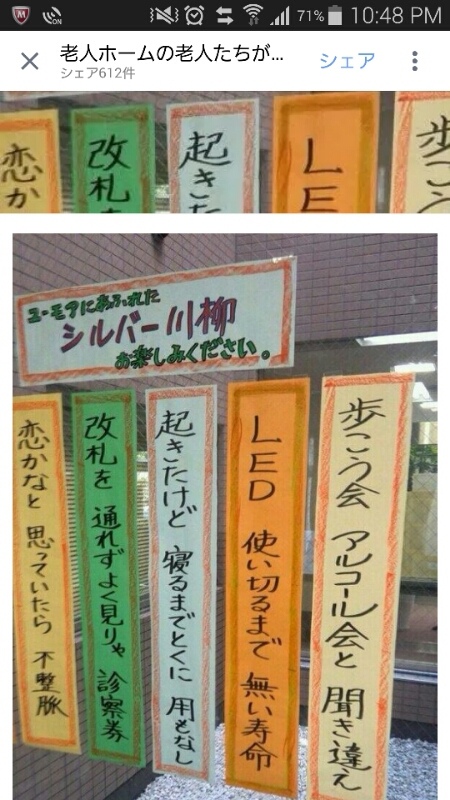 71% 10:48 PM
老人ホームの老人たちが...
シェア612件
シェア
歩こう
LE
起きた
改札を
恋か
ユーモアにあふれた
シルバー川柳
お楽しみください。
歩こう会 アルコール会と 聞き違え
LED 使い切るまで 無い寿命
起きたけど 寝るまでとくに 用もなし
改札を 通れずよく見りゃ 診察券
恋かなと 思っていたら 不整脈